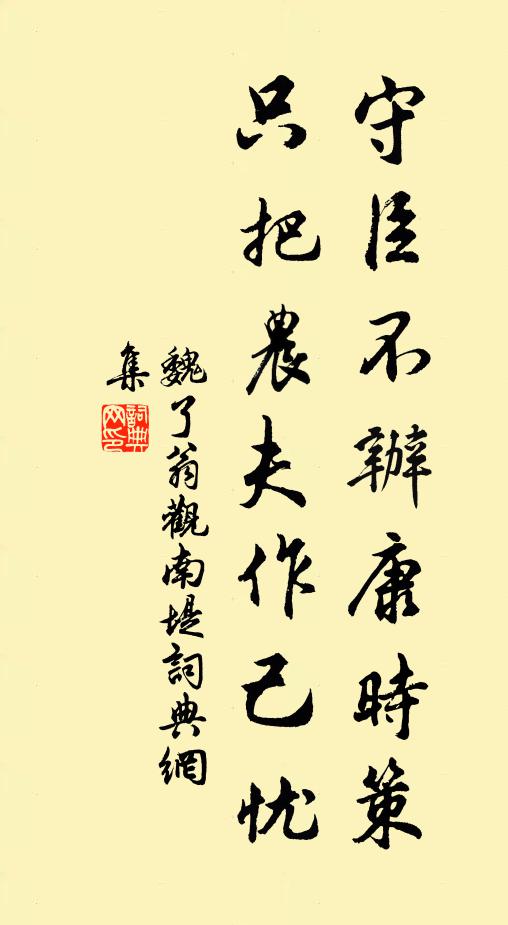 守臣不辦康時策
只把農夫作己忧
魏了翁觀南堤詞典網
集
詞典
网印